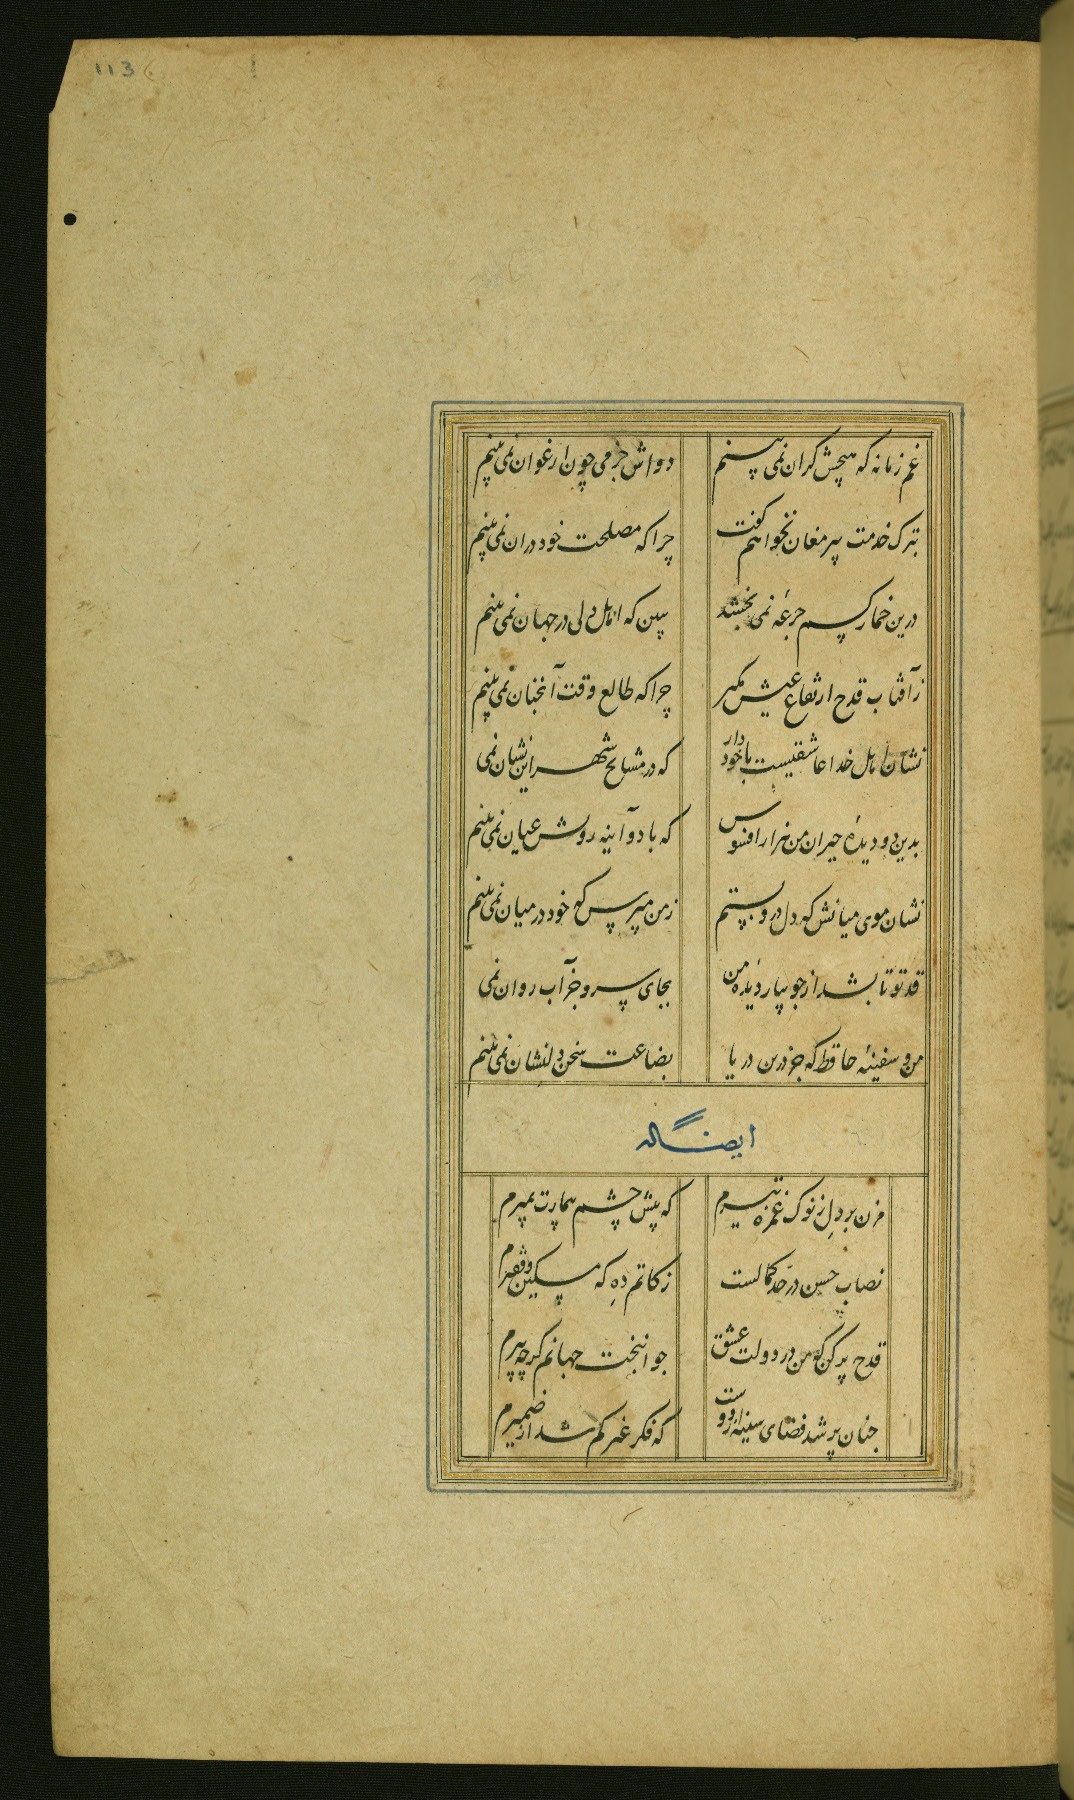 113
غم زمانه که هیچش کران نمی بینم
دواش جز می چون ارغوان نمی بینم
بترک خدمت پیر مغان نخواهم کفت
چرا که مصلحت خود دران نمی بینم
درین خمار کسم جرعهٔ نمی بخشد
ببین که اهل دلی در جهان نمی بینم
زآفتاب قدح ارتفاع عیش بکیر
چرا که طالع وقت آنچنان نمی بینم
نشان اهل خدا عاشقیست با خود دار
که در مشایخ شهر این نشان نمی
بدین دو دیدهٔ حیران من هزار افسوس
که با دو آینه رویش عیان نمی بینم
نشان موی میانش که دل درو بستم
ز من مپرس که خود در میان نمی بینم
قد تو تا بشد از جویبار دیده من
بجای سرو جز آب روان نمی
من و سفینهٔ حافظ که جز درین دریا
بضاعت سخن دلنشان نمی بینم
ایضا له
مزن بر دل ز نوک غمزه تیرم
که پیش چشم بیمارت بمیرم
نصاب حسن در حد کمالست
زکاتم ده که مسکین و فقیرم
قدح پر کن که من در دولت عشق
جوانبخت جهانم کرچه پیرم
چنان پر شد فضای سینه از دوست
که فکر غیر کم شد از ضمیرم